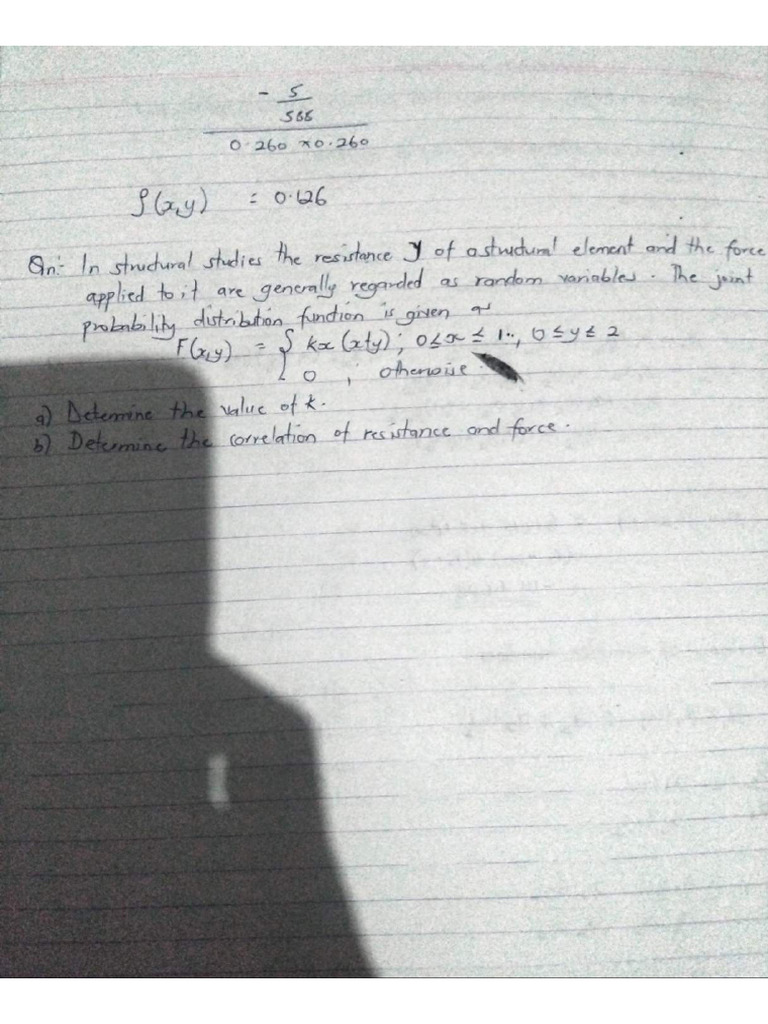 - 5
588
0.260 x0.260
ρ(x,y) = 0.126
Qn:- In structural studies the resistance Y of a structural element and the force
applied to it are generally regarded as random variables. The joint
probability distribution function is given as
F(x,y) = { kx(x+y); 0≤x≤1.., 0≤y≤2
0 , otherwise.
a) Determine the value of k.
b) Determine the correlation of resistance and force.